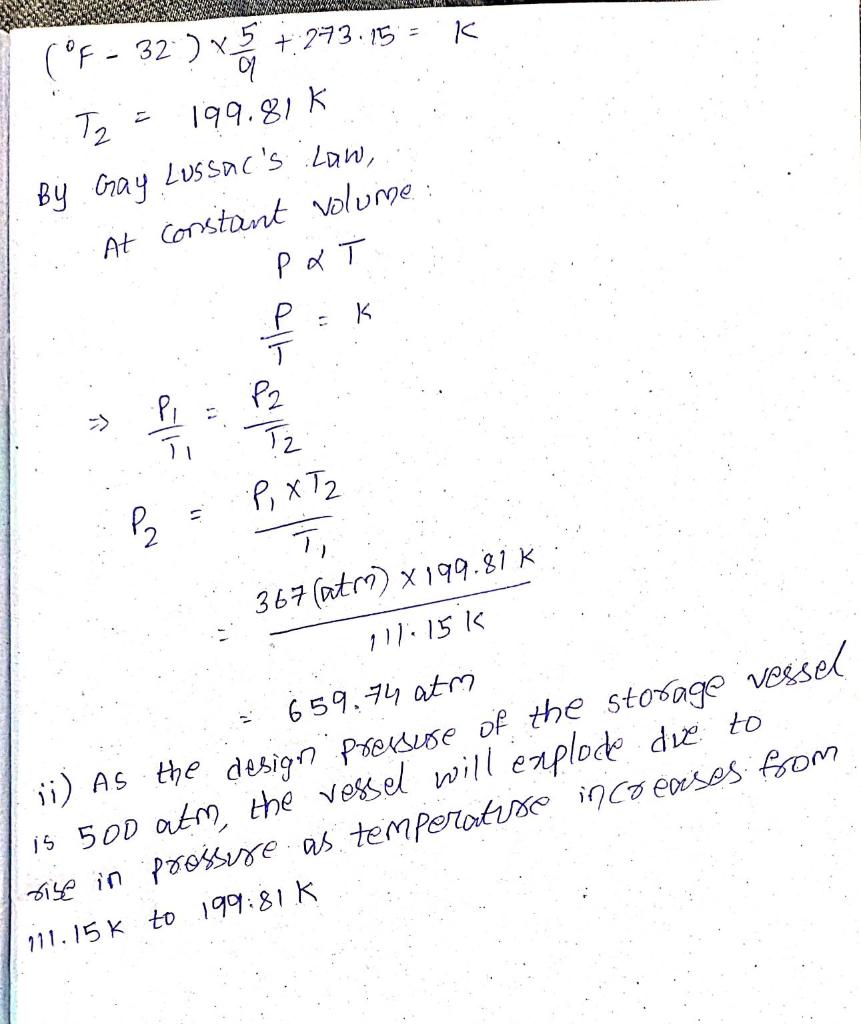 (°F - 32) x 5/9 + 273.15 = K
T2 = 199.81 K
By Gay Lussac's Law,
At constant volume:
P α T
P/T = K
⇒ P1/T1 = P2/T2
P2 = P1 x T2 / T1
= 367 (atm) x 199.81 K / 111.15 K
= 659.74 atm
ii) As the design pressure of the storage vessel
is 500 atm, the vessel will explode due to
rise in pressure as temperature increases from
111.15K to 199.81 K